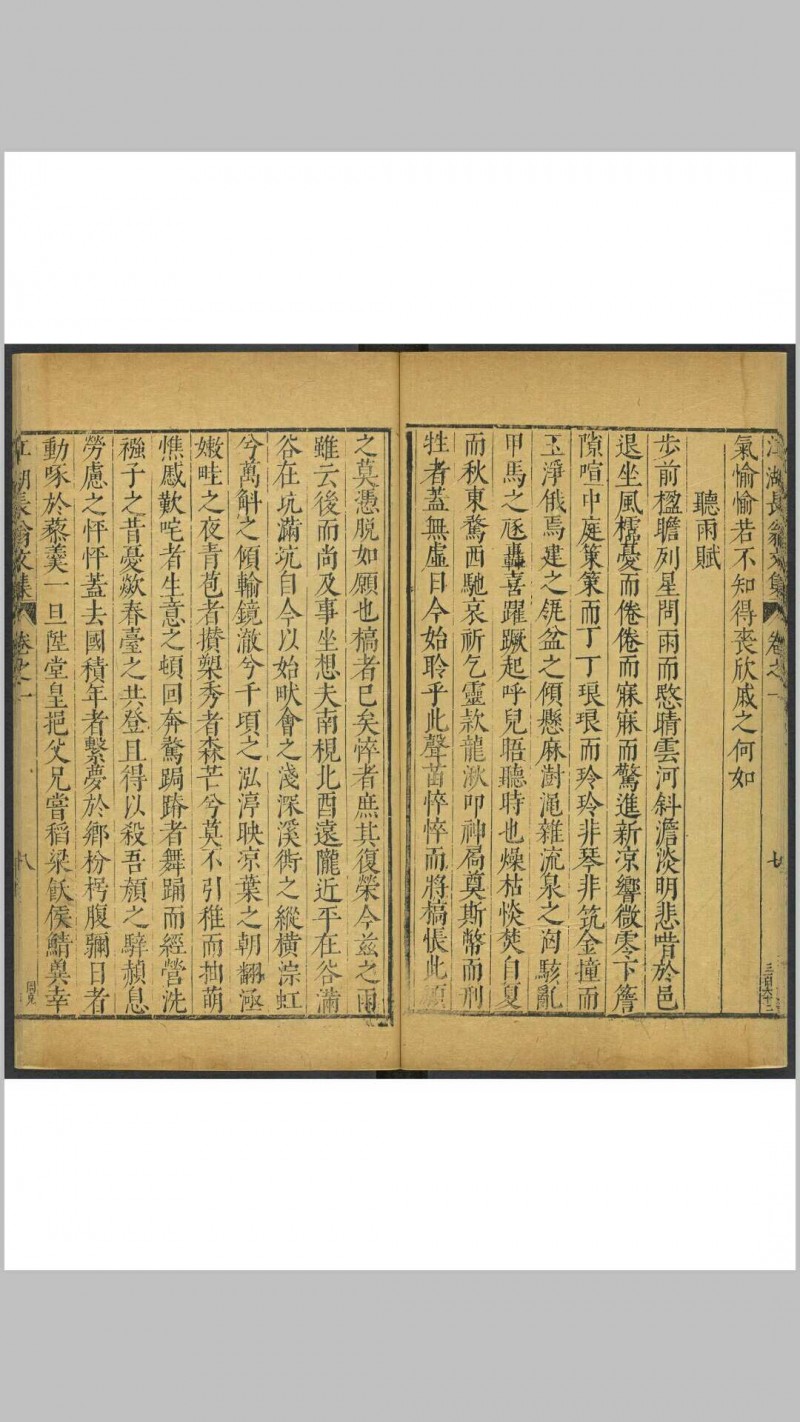 江湖長翁文集 卷之一 七 三百六十三
氣愉愉若不知得喪欣戚之何如
聽雨賦
步前楹瞻列星問雨而愍晴雲河斜澹淡明悲喟於邑
退坐風櫺憂而倦倦而寐寐而驚進新凉響微零下簷
隙喧中庭策策而丁丁琅琅而玲玲非琴非筑金撞而
玉淨俄焉建之瓴盆之傾懸麻澍澠雜流泉之㶁駭亂
甲馬之轟喜躍蹶起呼兒晤聽時也燥枯惔焚自夏
而秋東騖西馳哀祈乞靈款龍湫叩神扃奠斯幣而刑
牲者蓋無虛日今始聆乎此聲苗悴悴而將槁悵此願
之莫憑脫如願也槁者已矣悴者庶其復榮今兹之雨
雖云後而尚及事坐想夫南梘北酉遠隴近乎在谷滿
谷在坑滿坑自今以始畎澮之淺深溪衖之縱橫淙虹
兮萬斛之傾輸鏡澈兮千頃之泓渟映凉葉之朝翻涵
嫩畦之夜青苞者攢槊秀者森芒兮莫不引稚而抽萌
憔慼歎咤者生意之頓回奔騖跼蹐者舞踊而經營洗
襁子之昔憂歘春臺之共登且得以殺吾顏之騂赬息
勞慮之怦怦蓋去國積年者繫夢於鄉枌枵腹彌日者
動啄於藜羹一旦陞堂皇挹父兄嘗稻粱飫侯鯖奠幸
江湖長翁文集 卷之一 八